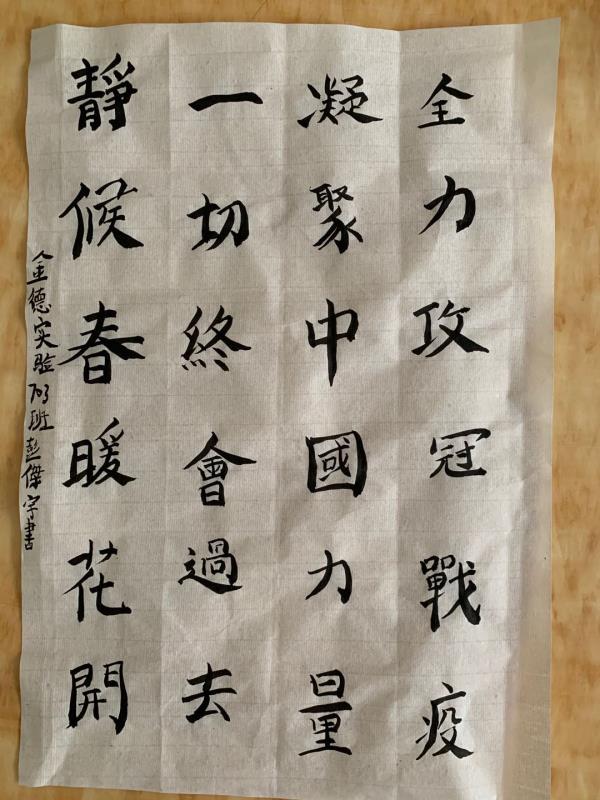 全力攻冠戰疫
凝聚中國力量
一切終會過去
靜候春暖花開
金德实验703班彭傑宇書